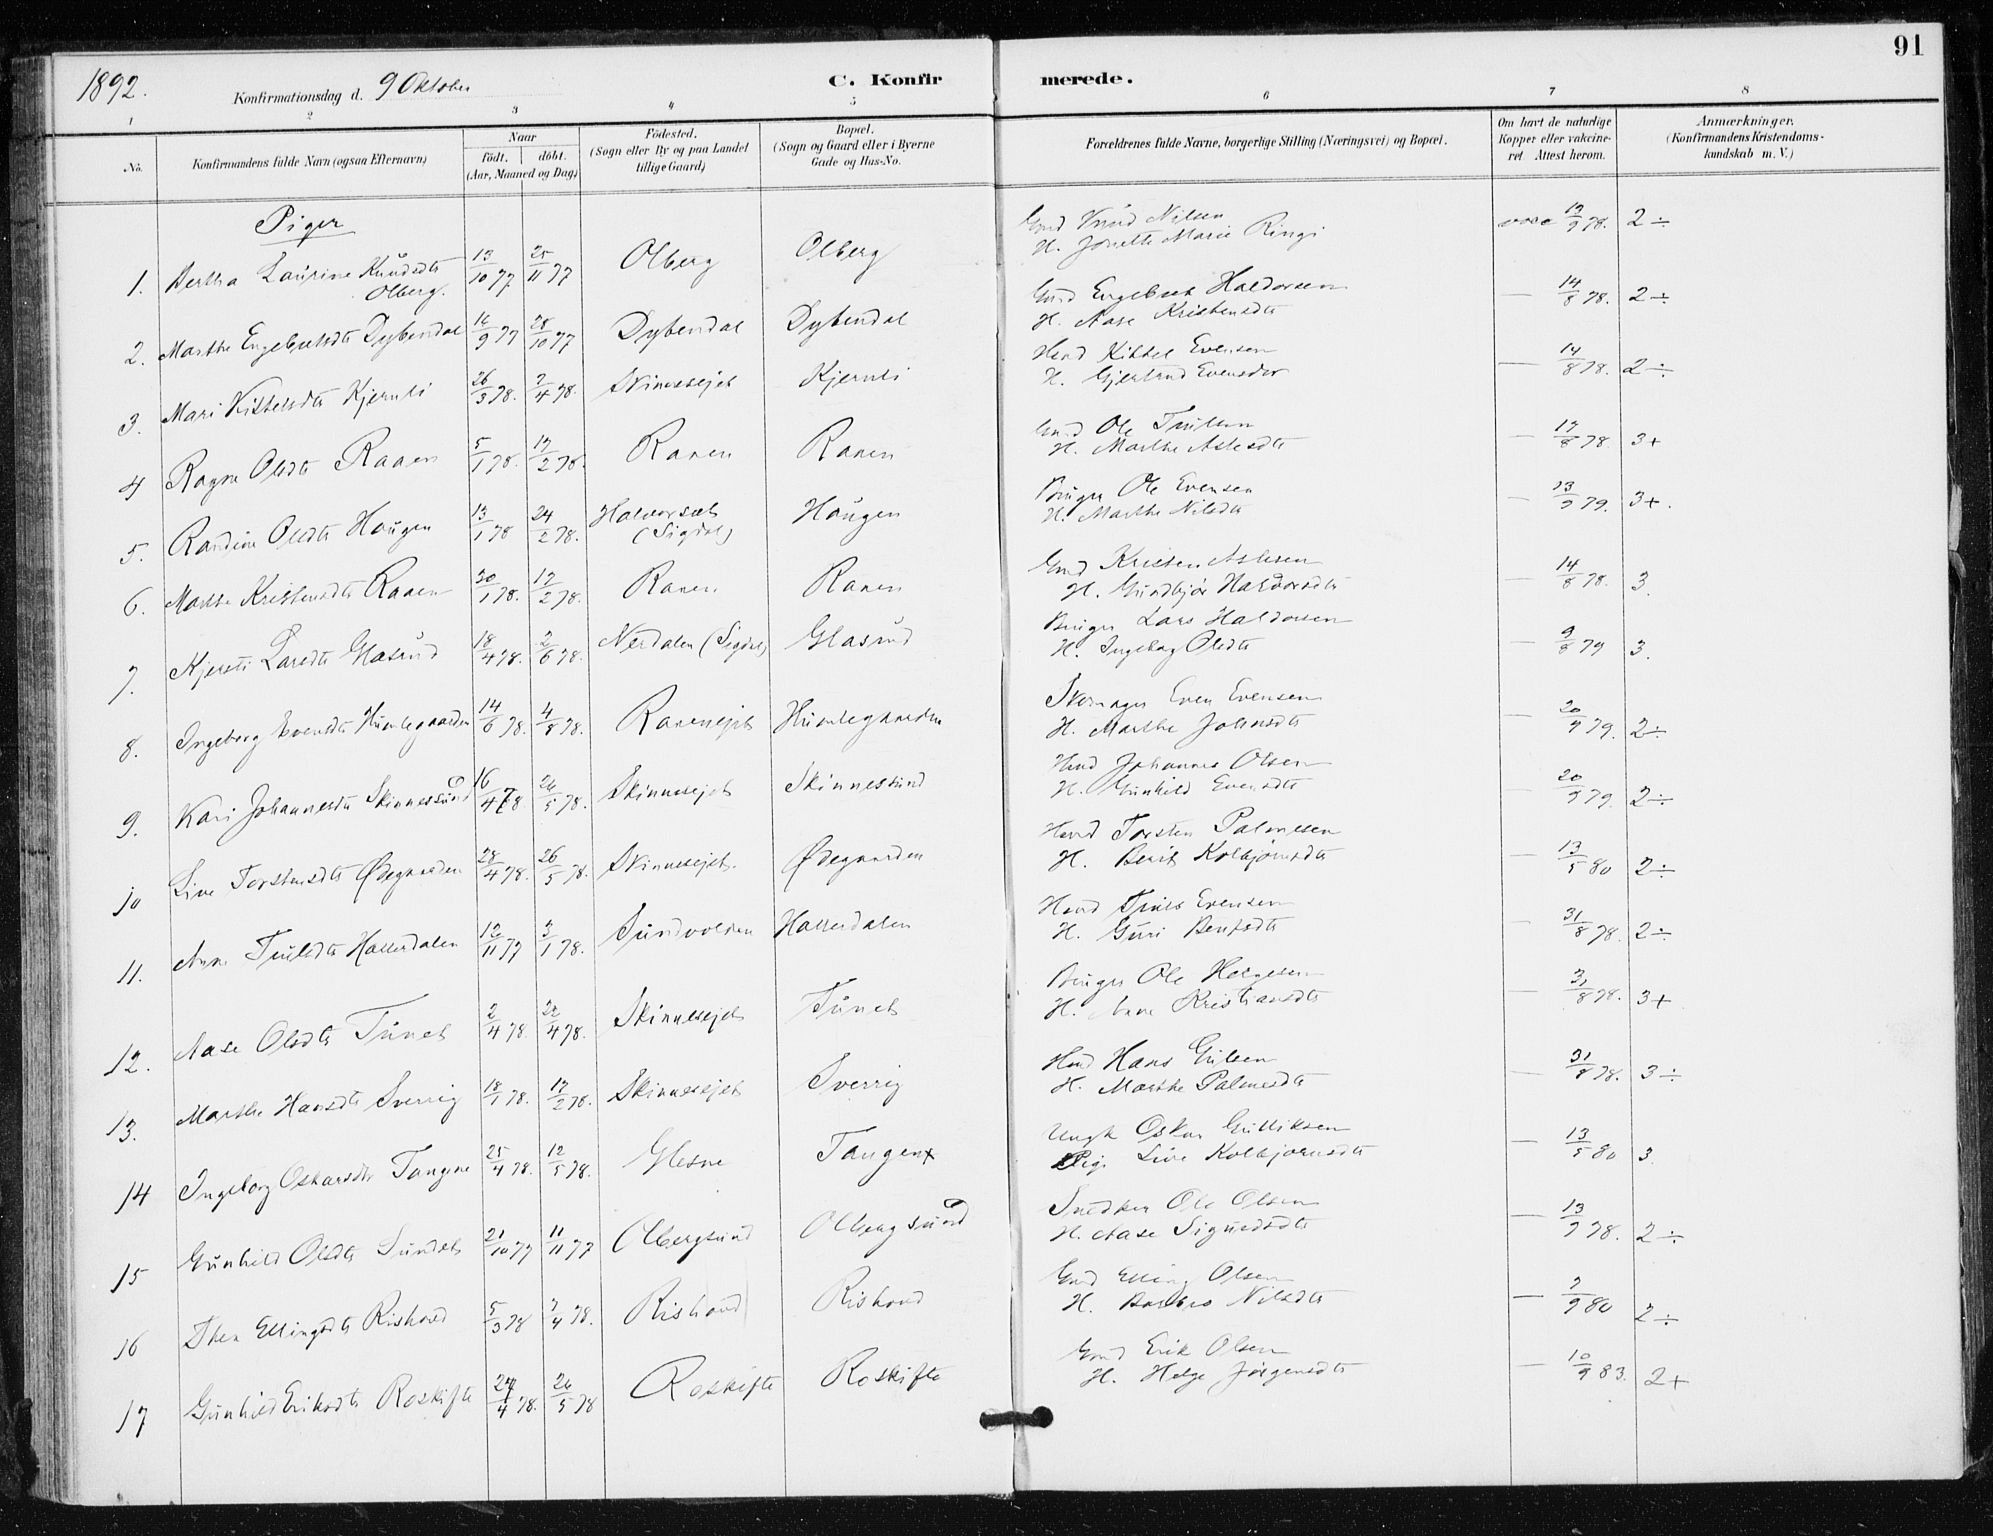 91
1892. Konfirmationsdag d. 9 Oktober C. Konfir merede.
1 2 3 4 5 6 7 8
No. Konfirmandens fulde Navn (ogsaa Efternavn) Naar födt. döbt. (Aar, Maaned og Dag) Födested. (Sogn eller By og paa Landet tillige Gaard) Bopæl. (Sogn og Gaard eller i Byerne Gade og Hus-No. Forældrenes fulde Navne, borgerlige Stilling (Næringsvei) og Bopæl. Om havt de naturlige Kopper eller vakcineret. Attest herom. Anmærkninger. (Konfirmandens Kristendomskundskab m. V.)
Piger
1. Bertha Laurine Knudsdtr Olberg. 13/10 77 25/11 77 Olberg Olberg Gmd Knud Nilsen H. Jonette Marie Ringi vacc 19/9 78. 2 ÷
2. Marthe Engebretsdtr Dybendal 16/9 77 28/10 77 Dybendal Dybendal Gmd Engebret Haldorsen H. Aase Kristensdtr — 14/8 78. 2 ÷
3. Mari Kittelsdtr Kjernli 26/3 78. 7/4 78. Skinnesejet Kjernli Hmd Kittel Evensen H. Gjertrud Evensdtr — 14/8 78. 2 ÷
4 Ragne Olsdtr Raaen 5/1 78. 17/2 78. Raaen Raaen Gmd Ole Trulsen H. Marthe Aslesdtr — 17/8 78. 3+
5. Randine Olsdtr Haugen 13/1 78 24/2 78. Halvorset (Sigdal) Haugen Bruger Ole Evensen H. Marthe Nilsdtr — 23/9 79. 3+.
6. Marthe Kristensdtr Raaen 20/1 78. 17/2 78. Raaen Raaen Gmd Kristen Aslesen H. Gundbjør Haldorsdtr — 14/8 78. 3.
7. Kjersti Larsdtr Glasrud 18/4 78. 2/6 78. Nerdalen (Sigdal) Glasrud Bruger Lars Haldorsen H. Ingeborg Olsdtr — 9/8 79 3.
8. Ingeborg Evensdtr Humlegaarden 14/6 78. 4/8 78. Raaenejet Humlegaarden Skomager Even Evensen H. Marthe Johnsdtr — 20/9 79. 2 ÷
9. Kari Johannesdtr Skinnessund 16/4 78 26/5 78. Skinnesejet Skinnessund Hmd Johannes Olsen H. Gunhild Evensdtr — 20/9 79. 2 ÷
10 Live Torstensdtr Ødegaarden 28/4 78. 26/5 78. Skinnesejet. Ødegaarden Hmd Torsten Palmesen H. Berit Kolbjørnsdtr — 13/5 80 2 ÷
11. Anne Trulsdtr Hallerdalen 12/11 77 3/1 78. Sundvolden Hallerdalen Hmd Truls Evensen H. Guri Bentsdtr — 31/8 78. 2 ÷
12. Aase Olsdtr Tunet 2/4 78. 22/4 78. Skinnesejet Tunet Bruger Ole Helgesen H. Anne Kristiansdtr — 31/8 78. 3+
13. Marthe Hansdtr Sverrig 18/1 78. 17/2 78. Skinnesejet Sverrig Hmd Hans Gulsen H. Marthe Palmesdtr — 31/8 78. 3 ÷
14 Ingeborg Oskarsdtr Tangen 25/4 78. 12/5 78. Glesne Tangen Ungk Oskar Gulliksen Pige Live Kolbjørnsdtr — 13/5 80 3.
15 Gunhild Olsdtr Sundet 21/10 77 11/11 77 Olbergsund Olbergsund Snedker Ole Olsen H. Aase Sigurdsdtr — 13/9 78. 2 ÷
16 Thea Ellingsdtr Rishovd 5/3 78 7/4 78. Rishovd Rishovd Gmd Elling Olsen H. Barbro Nilsdtr — 7/9 80 2 ÷
17 Gunhild Eriksdtr Roskifte 24/4 78. 26/5 78 Roskifte Roskifte Gmd Erik Olsen H. Helge Jörgensdtr — 10/9 83. 2+